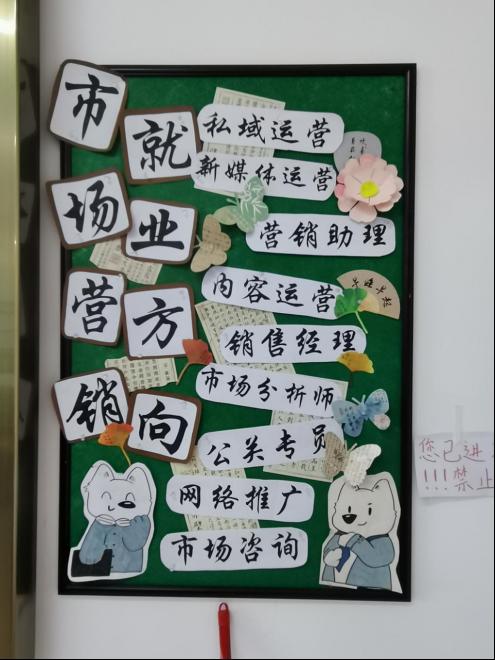 市场营销
就业方向
私域运营
新媒体运营
营销助理
内容运营
销售经理
市场分析师
公关专员
网络推广
市场咨询
您已进
!!!禁止